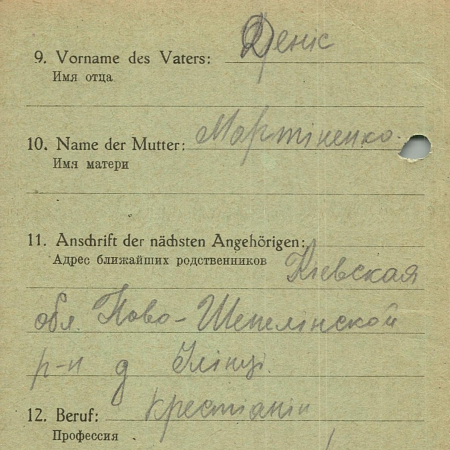 9. Vorname des Vaters: Деніс
Имя отца
10. Name der Mutter: Мартіненко
Имя матери
11. Anschrift der nächsten Angehörigen:
Адрес ближайших родственников Кіевская
обл. Ново-Шепелінской
р-н д Ілінці.
12. Beruf: Крестіанін
Профессия